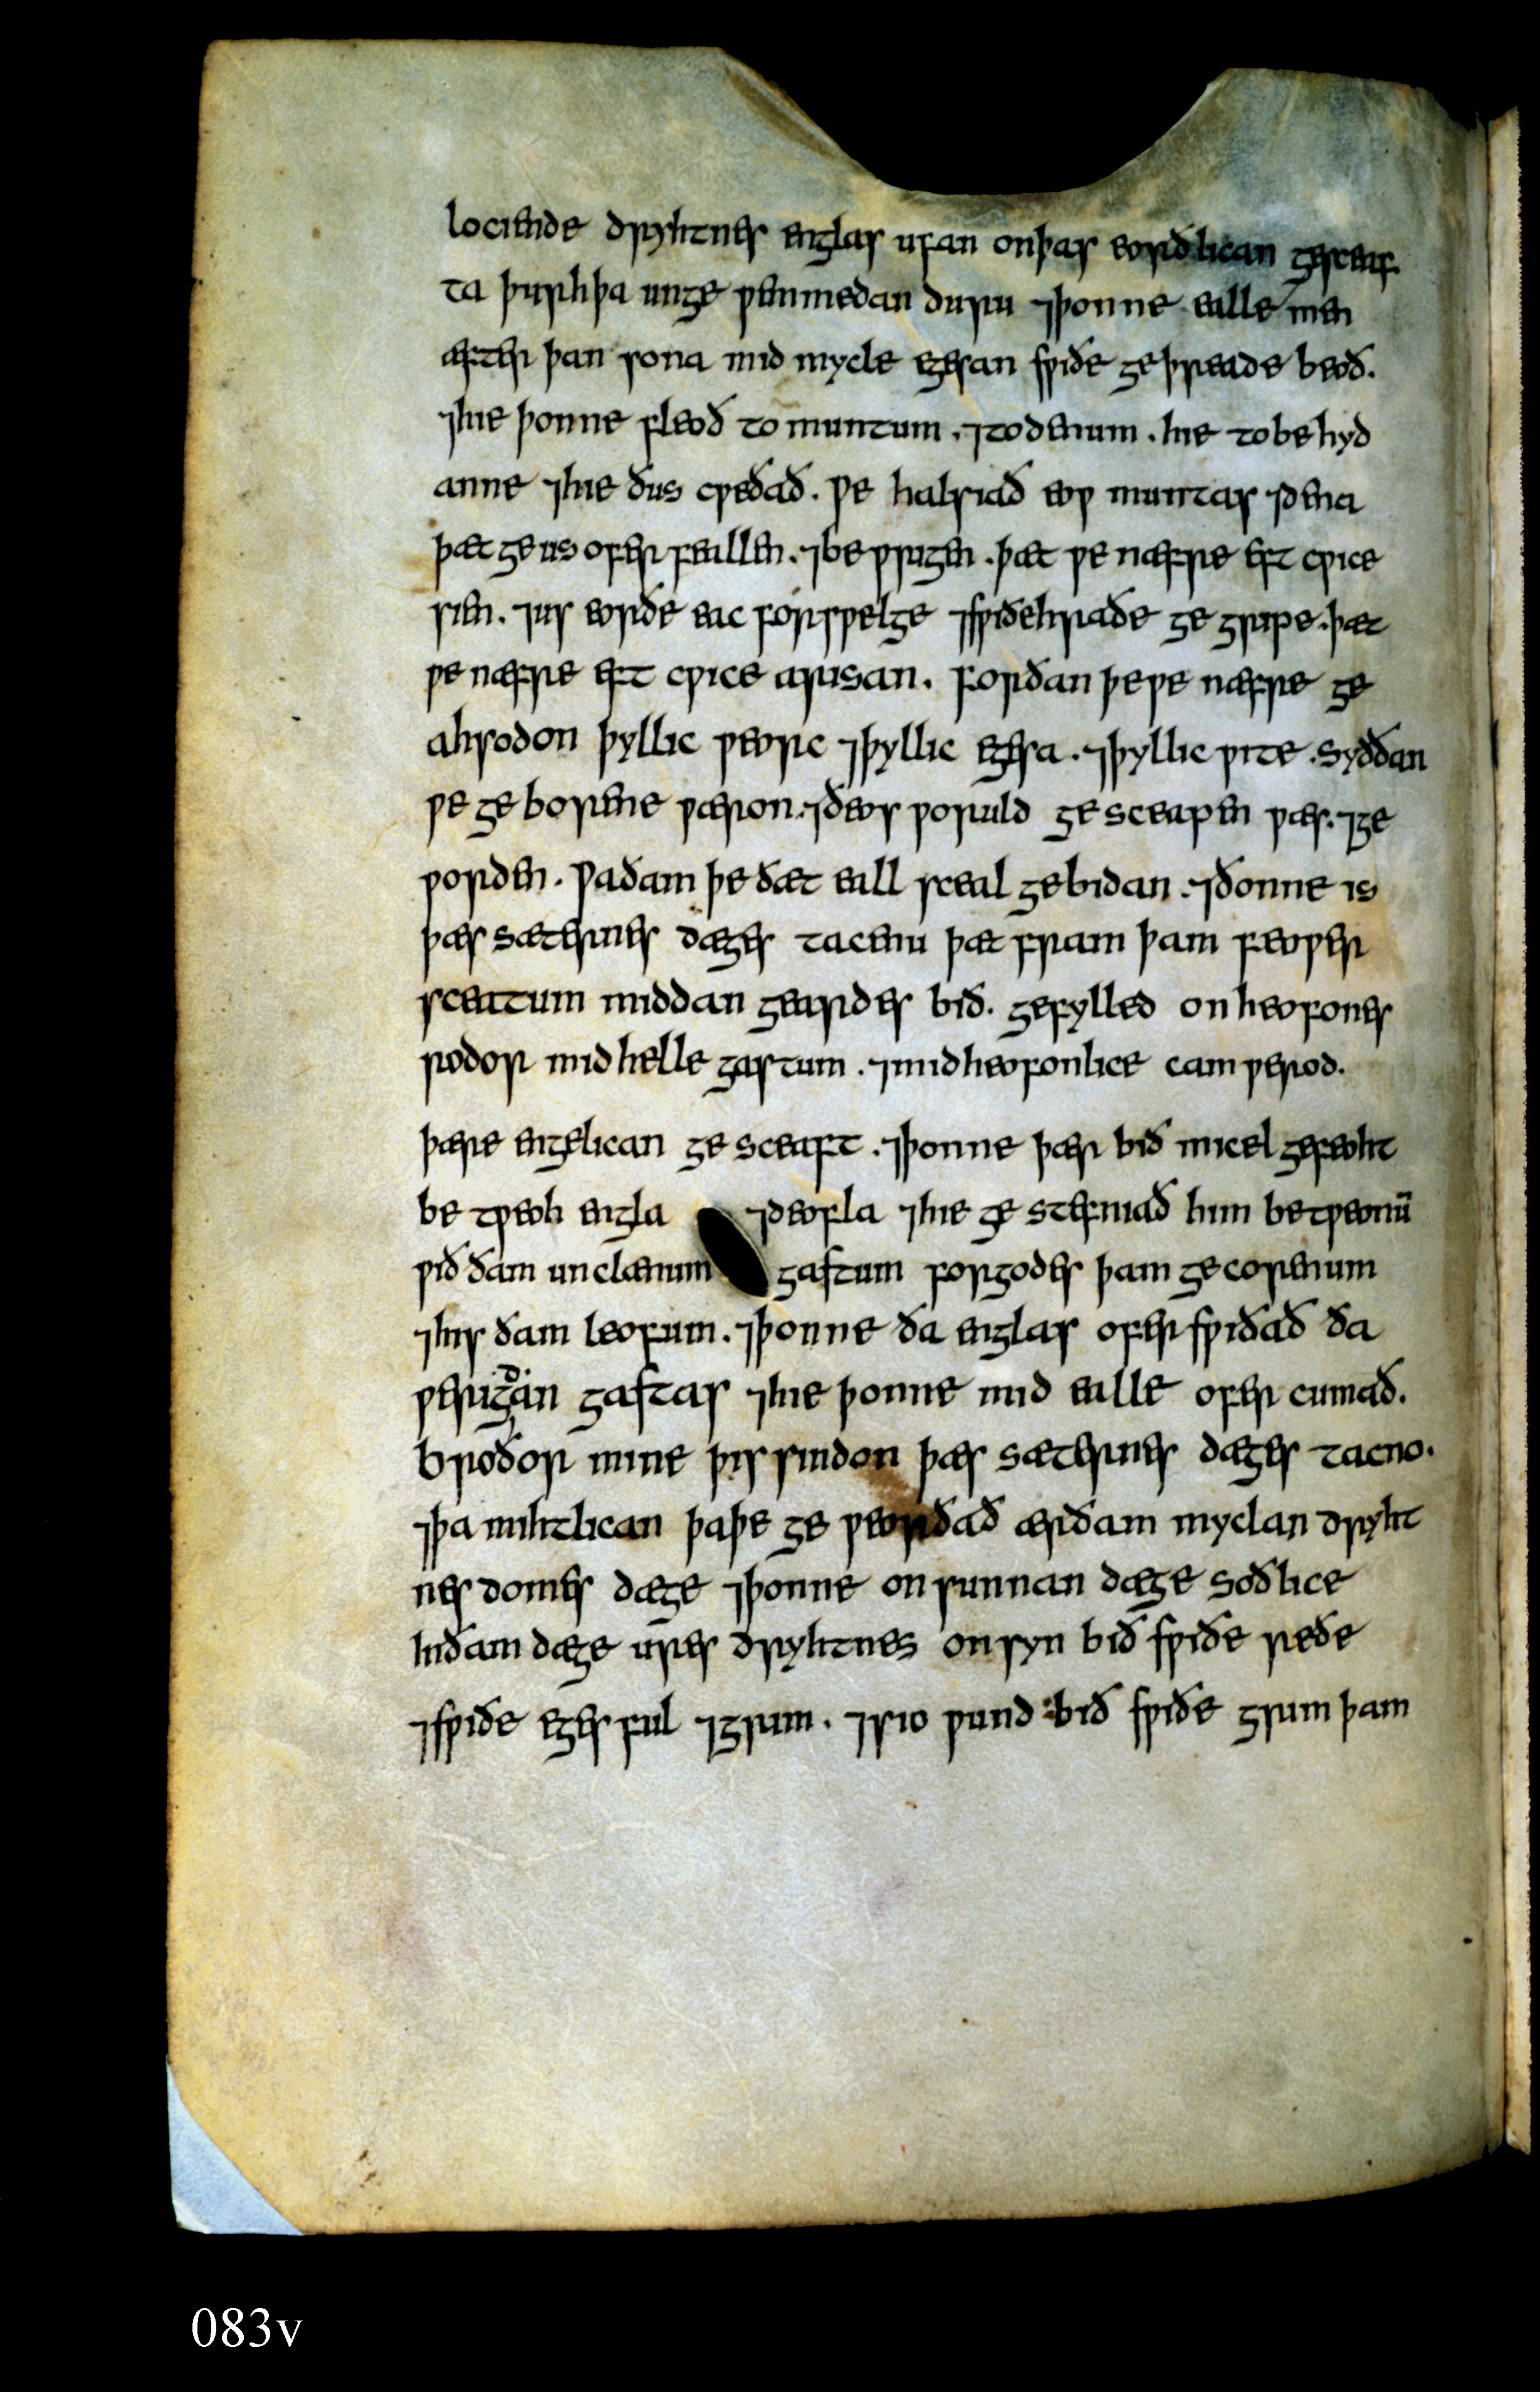 lociende dryhtnes englas ufan on þas eorðlican gesceaf
ta þurh þa unge wenmedan duru ⁊ þonne ealle men
æfter þan sona mid mycle egesan swiðe geþreade beoð.
⁊ hie þonne fleoð to muntum. ⁊ to denum. hie to be hyd
anne ⁊ hie ðus cweðað. We halsiað eow muntas ⁊ dena
þæt ge us ofer feallen. ⁊ be wrigen. þæt we næfre eft cwice
sien. ⁊ us eorðe eac forswelge ⁊ swiðe hraðe ge gripe. þæt
we næfre eft cwice arisan. forðan þe we næfre ge
ahsodon þyllic weorc ⁊ þyllic egesa. ⁊ þyllic wite. syððan
we ge borene wæron. ⁊ ðeos woruld ge sceapen wæs. ⁊ ge
worden. Wa ðam þe ðæt eall sceal gebidan. ⁊ ðonne is
þæs sæternes dæges tacenu þæt fram þam feower
sceattum middan geardes bið. gefylled on heofones
rodor mid helle gastum. ⁊ mid heofonlice camwerod.
þære engelican ge sceaft. ⁊ þonne þær bið micel gefeoht
be tweoh engla ⁊ deofla ⁊ hie ge stefniað him betweonū
wið ðam unclænum gastum for godes þam gecorenum
⁊ his ðam leofum. ⁊ þonne ða englas ofer swiðað ða
werigðan gastas ⁊ hie þonne mid ealle ofer cumað.
Broðor mine þis sindon þæs sæternes dæges tacno.
⁊ þa mihtlican þa þe ge weorðað ær ðam myclan dryht
nes domes dæge ⁊ þonne on sunnan dæge soðlice
In ðam dæge ures dryhtnes onsyn bið swiðe reðe
⁊ swiðe eges ful ⁊ grum. ⁊ sio wund bið swiðe grum þam
083v